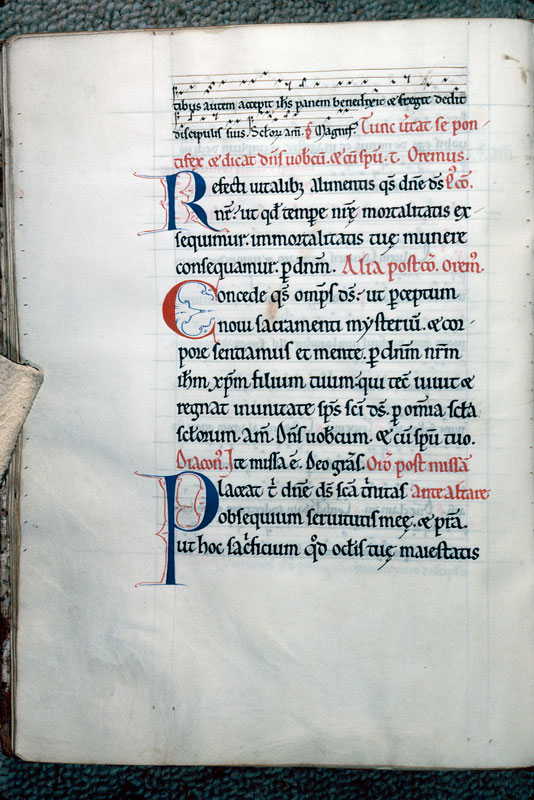 tibus autem accepit ihs panem benedixit & fregit dedit
discipulis suis. Sc̄lorū am̄. p̄ Magnif. Tunc u̾tat se pon
tifex & dicat dn̄s uobcū. & cū sp̄u. t. Oremus.
Refecti uitalibꝫ alimentis qs̄ dn̄e ds̄ p̾ cō.
nr̄. ut qd̄ tempe nr̄ę mortalitatis ex-
sequimur. immortalitatis tuę munere
consequamur. p dnm̄. Alia postcō. orem̾.
Concede qs̄ omps̄ ds̄. ut pceptum
noui sacramenti mysteriū. & cor-
pore sentiamus et mente. p dnm̄ nr̄m
ihm̄ xpm̄ filium tuum. qui tec̄ uiuit &
regnat in unitate sps̄ sc̄i ds̄. p om̄ia sc̄la
sc̄lorum. am̄. Dn̄s uobcum. & cū sp̄u tuo.
Diacon̾. Ite missa ē. Deo gr̄as. Or̄o post missā
Placeat t̾ dn̄e ds̄ sc̄a t̾nitas Ante altare
obsequium seruitutis meę. & p̾ta.
ut hoc sac̾ficium qd̾ oc̄lis tuę maiestatis